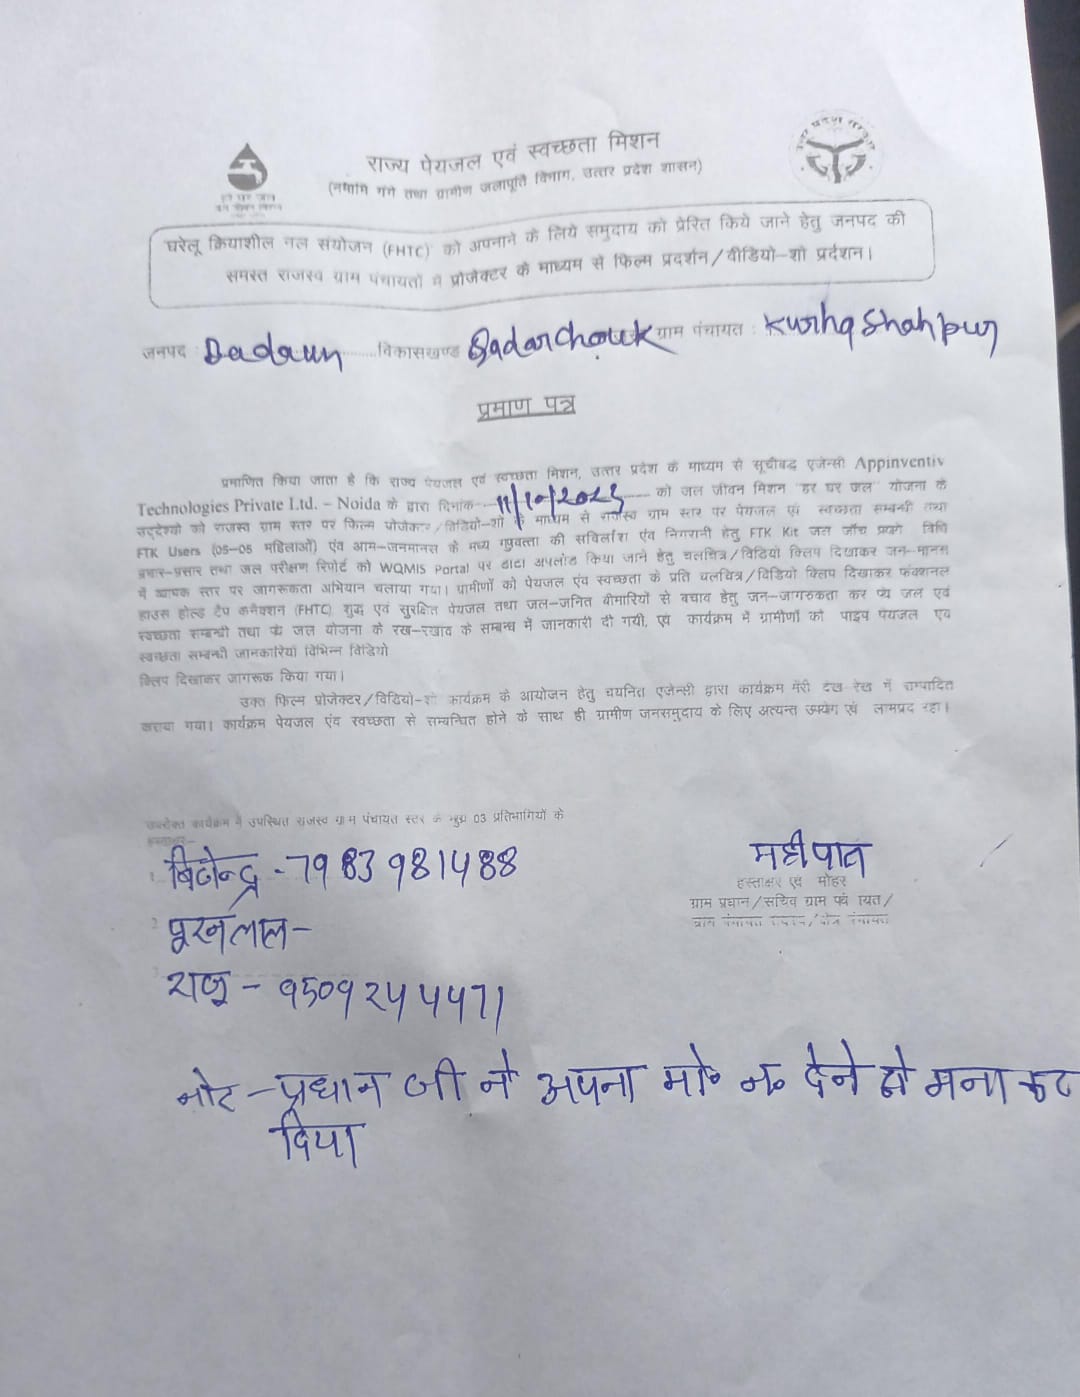 राज्य पेयजल एवं स्वच्छता मिशन
(नमामि गंगे तथा ग्रामीण जलापूर्ति विभाग, उत्तर प्रदेश शासन)
घरेलू क्रियाशील नल संयोजन (FHTC) को अपनाने के लिये समुदाय को प्रेरित किये जाने हेतु जनपद की
समस्त राजस्व ग्राम पंचायतों में प्रोजेक्टर के माध्यम से फिल्म प्रदर्शन/वीडियो-शो प्रर्दशन।
जनपद : Badaun विकासखण्ड Qadarchowk ग्राम पंचायत : Kurha Shahpur
प्रमाण पत्र
प्रमाणित किया जाता है कि राज्य पेयजल एवं स्वच्छता मिशन, उत्तर प्रदेश के माध्यम से सूचीबद्ध एजेन्सी Appinventiv
Technologies Private Ltd. – Noida के द्वारा दिनांक 11/10/2023 को जल जीवन मिशन "हर घर जल" योजना के
उद्देश्यो को राजस्व ग्राम स्तर पर फिल्म प्रोजेक्टर/विडियो-शो के माध्यम से राजस्व ग्राम स्तर पर पेयजल एवं स्वच्छता सम्बन्धी तथा
FTK Users (05-05 महिलाओं) एंव आम-जनमानस के मध्य गुणवत्ता की सर्विलांश एंव निगरानी हेतु FTK Kit जल जाँच प्रयोग विधि
प्रचार-प्रसार तथा जल परीक्षण रिपोर्ट को WQMIS Portal पर डाटा अपलोड किया जाने हेतु चलचित्र/विडियो क्लिप दिखाकर जन-मानस
में व्यापक स्तर पर जागरूकता अभियान चलाया गया। ग्रामीणों को पेयजल एंव स्वच्छता के प्रति चलचित्र/विडियो क्लिप दिखाकर फंक्शनल
हाउस होल्ड टैप कनैक्शन (FHTC) शुद्ध एवं सुरक्षित पेयजल तथा जल-जनित बीमारियों से बचाव हेतु जन-जागरुकता कर पेय जल एवं
स्वच्छता सम्बन्धी तथा पेय जल योजना के रख-रखाव के सम्बन्ध में जानकारी दी गयी, एवं कार्यक्रम में ग्रामीणों को पाइप पेयजल एवं
स्वच्छता सम्बन्धी जानकारियां विभिन्न विडियो
क्लिप दिखाकर जागरूक किया गया।
उक्त फिल्म प्रोजेक्टर/विडियो-शो कार्यक्रम के आयोजन हेतु चयनित एजेन्सी द्वारा कार्यक्रम मेरी देख रेख में सम्पादित
कराया गया। कार्यक्रम पेयजल एंव स्वच्छता से सम्बन्धित होने के साथ ही ग्रामीण जनसमुदाय के लिए अत्यन्त उपयोग एवं लाभप्रद रहा।
उपरोक्त कार्यक्रम में उपस्थित राजस्व ग्राम पंचायत स्तर के मुख्य 03 प्रतिभागियों के
हस्ताक्षर-
- 7983981488
महीपाल
हस्ताक्षर एवं मोहर
ग्राम प्रधान/सचिव ग्राम पंचायत/
पूरनलाल-
राजू - 9509244471
नोट - प्रधान जी ने अपना मो० न० देने से मना कर
दिया